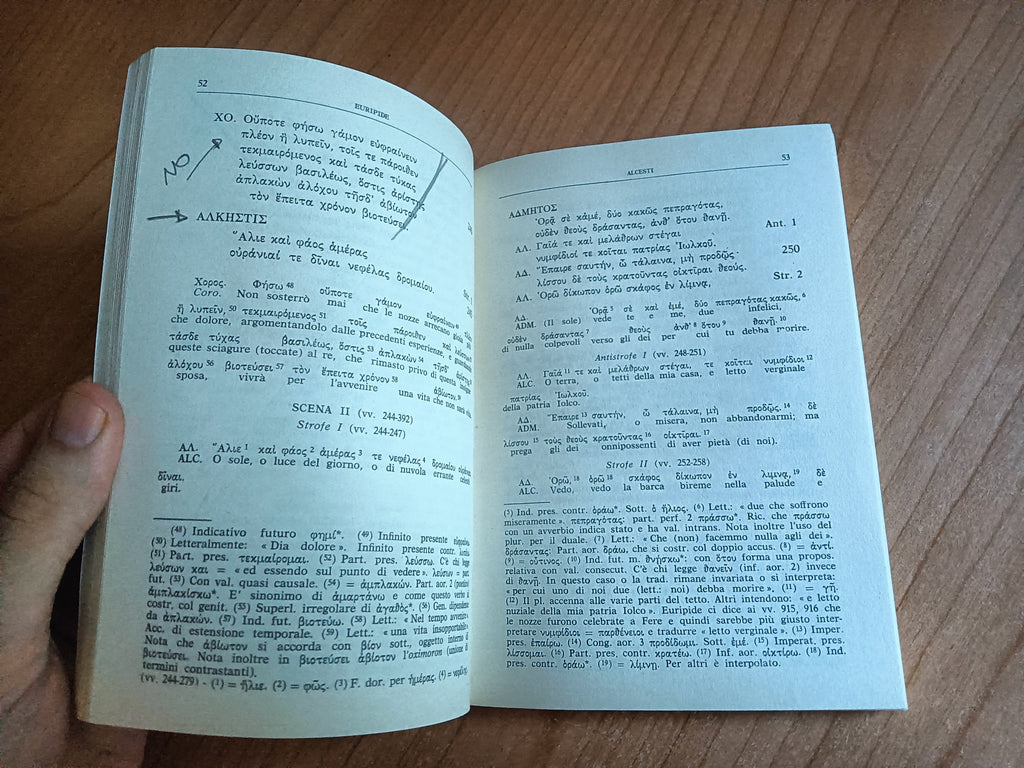 52
EURIPIDE
ΧΟ. Οὔποτε φήσω γάμον εὐφραίνειν
πλέον ἢ λυπεῖν, τοῖς τε πάροιθεν
τεκμαιρόμενος καὶ τάσδε τύχας
λεύσσων βασιλέως, ὅστις ἀρίστης
ἀπλακὼν ἀλόχου τῆσδ' ἀβίωτον
τὸν ἔπειτα χρόνον βιοτεύσει.
NO
ΑΛΚΗΣΤΙΣ
Ἅλιε καὶ φάος ἁμέρας
οὐράνιαί τε δῖναι νεφέλας δρομαίου.
Χορος. Φήσω 48 οὔποτε γάμον εὐφραίνειν 49
Coro. Non sosterrò mai che le nozze arrecano
ἢ λυπεῖν, 50 τεκμαιρόμενος 51 τοῖς πάροιθεν καὶ
che dolore, argomentandolo dalle precedenti esperienze, e
τάσδε τύχας βασιλέως, ὅστις 53 ἀπλακὼν 54 τῆσδ'
queste sciagure (toccate) al re, che rimasto privo di questa
ἀλόχου 56 βιοτεύσει 57 τὸν ἔπειτα χρόνον 58 ἀβίωτον. 59
sposa, vivrà per l'avvenire una vita che non sarà
SCENA II (vv. 244-392)
Strofe I (vv. 244-247)
ΑΛ. Ἅλιε 1 καὶ φάος 2 ἁμέρας 3 τε νεφέλας 4 δρομαίου
ALC. O sole, o luce del giorno, o di nuvola errante celesti
δῖναι.
giri.
(48) Indicativo futuro φημί*. (49) Infinito presente
(50) Letteralmente: « Dia dolore ». Infinito presente contr.
(51) Part. pres. τεκμαίρομαι. (52) Part. pres. λεύσσω. C'è chi legge
λεύσων και = « ed essendo sul punto di vedere ». λεύσων = part.
fut. (53) Con val. quasi causale. (54) = ἀμπλακών. Part. aor. 2
ἀμπλακίσκω*. E' sinonimo di ἁμαρτάνω e come questo verbo si
costr. col genit. (55) Superl. irregolare di ἀγαθός*. (56) Gen. dipendente
da ἀπλακών. (57) Ind. fut. βιοτεύω. (58) Lett.: « Nel tempo avvenire »
Acc. di estensione temporale. (59) Lett.: « una vita insopportabile »
Nota che ἀβίωτον si accorda con βίον sott., oggetto interno di
βιοτεύσει. Nota inoltre in βιοτεύσει ἀβίωτον l'oximoron (unione di
termini contrastanti).
(vv. 244-279) - (1) = ἥλιε. (2) = φῶς. (3) F. dor. per ἡμέρας. (4) = νεφέλης
53
ALCESTI
ΑΔΜΗΤΟΣ
Ὁρᾷ σὲ κἀμέ, δύο κακῶς πεπραγότας,
οὐδὲν θεοὺς δράσαντας, ἀνθ' ὅτου θανῇ.
ΑΛ. Γαῖά τε καὶ μελάθρων στέγαι Ant. 1
νυμφίδιοί τε κοῖται πατρίας Ἰωλκοῦ.
ΑΔ. Ἔπαιρε σαυτήν, ὦ τάλαινα, μὴ προδῷς· 250
λίσσου δὲ τοὺς κρατοῦντας οἰκτῖραι θεούς.
ΑΛ. Ὁρῶ δίκωπον ὁρῶ σκάφος ἐν λίμνᾳ, Str. 2
ΑΔ. Ὁρᾷ 5 σὲ καὶ ἐμέ, δύο πεπραγότας κακῶς, 6
ADM. (Il sole) vede te e me, due infelici,
οὐδὲν δράσαντας 7 θεοὺς ἀνθ' 8 ὅτου 9 θανῇ. 10
di nulla colpevoli verso gli dei per cui tu debba morire.
Antistrofe I (vv. 248-251)
ΑΛ. Γαῖά 11 τε καὶ μελάθρων στέγαι, τε κοῖται νυμφίδιοι 12
ALC. O terra, o tetti della mia casa, e letto verginale
πατρίας Ἰωλκοῦ.
della patria Iolco.
ΑΔ. Ἔπαιρε 13 σαυτήν, ὦ τάλαινα, μὴ προδῷς. 14 δὲ
ADM. Sollevati, o misera, non abbandonarmi; ma
λίσσου 15 τοὺς θεοὺς κρατοῦντας 16 οἰκτῖραι. 17
prega gli dei onnipossenti di aver pietà (di noi).
Strofe II (vv. 252-258)
ΑΔ. Ὁρῶ, 18 ὁρῶ 18 σκάφος δίκωπον ἐν λίμνᾳ, 19 δὲ
ALC. Vedo, vedo la barca bireme nella palude e
(5) Ind. pres. contr. ὁράω*. Sott. ὁ ἥλιος. (6) Lett.: « due che soffrono
miseramente ». πεπραγότας: part. perf. 2 πράσσω*. Ric. che πράσσω
con un avverbio indica stato e ha val. intrans. Nota inoltre l'uso del
plur. per il duale. (7) Lett.: « Che (non) facemmo nulla agli dei ».
δράσαντας: Part. aor. δράω, che si costr. col doppio accus. (8) = ἀντί.
(9) = οὗτινος. (10) Ind. fut. m. θνήσκω*: con ὅτου forma una propos.
relativa con val. consecut. C'è chi legge θανεῖν (inf. aor. 2) invece
di θανῇ. In questo caso o la trad. rimane invariata o si interpreta:
« per cui uno di noi due (lett.: noi) debba morire », (11) = γῆ.
(12) Il pl. accenna alle varie parti del tetto. Altri intendono: « e letto
nuziale della mia patria Iolco ». Euripide ci dice ai vv. 915, 916 che
le nozze furono celebrate a Fere e quindi sarebbe più giusto inter-
pretare νυμφίδιοι = παρθένειοι e tradurre « letto verginale ». (13) Imper.
pres. ἐπαίρω. (14) Cong. aor. 3 προδίδωμι. Sott. ἐμέ. (15) Imperat. pres.
λίσσομαι. (16) Part. pres. contr. κρατέω. (17) Inf. aor. οἰκτίρω. (18) Ind.
pres. contr. ὁράω*. (19) = λίμνῃ. Per altri è interpolato.